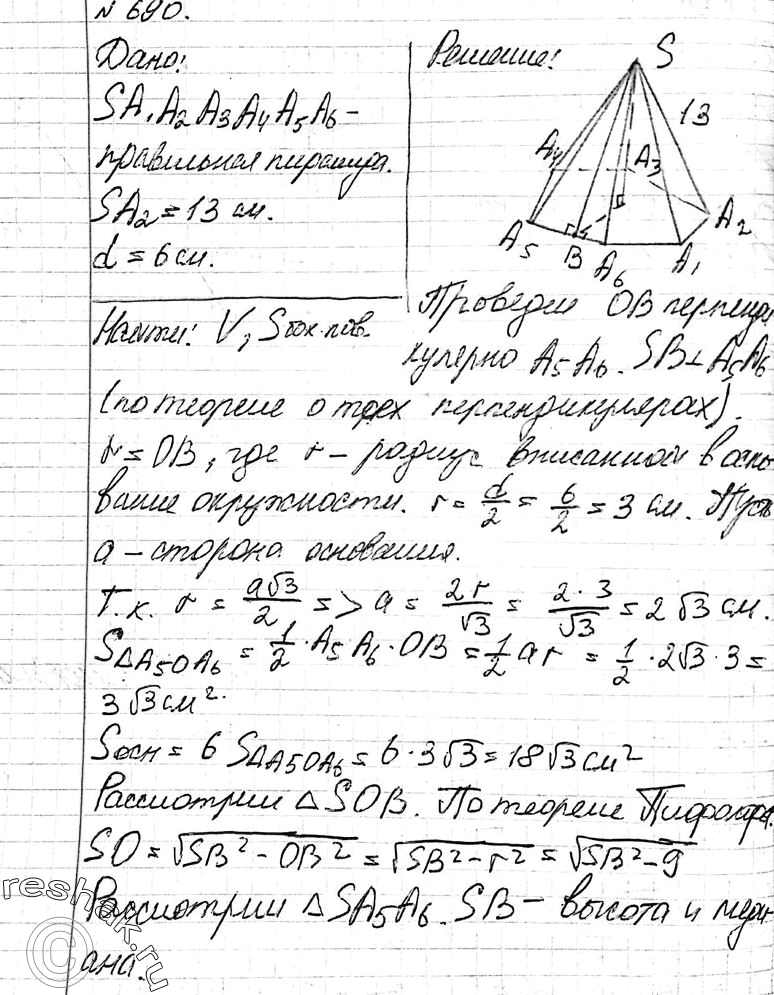 № 690.
Дано:
SA₁A₂A₃A₄A₅A₆ –
правильная пирамида.
SA₂ = 13 см.
d = 6 см.
Найти: V, Sбок. пов.
Решение:
S
13
A₄
A₃
A₂
A₅
B
A₆
A₁
Проведем OB перпенди
кулярно A₅A₆. SB ⊥ A₅A₆
(по теореме о трех перпендикулярах).
r = OB, где r – радиус вписанной в осно
вание окружности. r = d/2 = 6/2 = 3 см. Пусть
a – сторона основания.
Т. к. r = a√3/2 => a = 2r/√3 = 2·3/√3 = 2√3 см.
S△A₅OA₆ = 1/2 · A₅A₆ · OB = 1/2 ar = 1/2 · 2√3 · 3 =
3√3 см².
Sосн = 6 S△A₅OA₆ = 6 · 3√3 = 18√3 см²
Рассмотрим △SOB. По теореме Пифагора:
SO = √SB² – OB² = √SB² – r² = √SB² – 9
Рассмотрим △SA₅A₆. SB – высота и меди
ана.
© reshak.ru